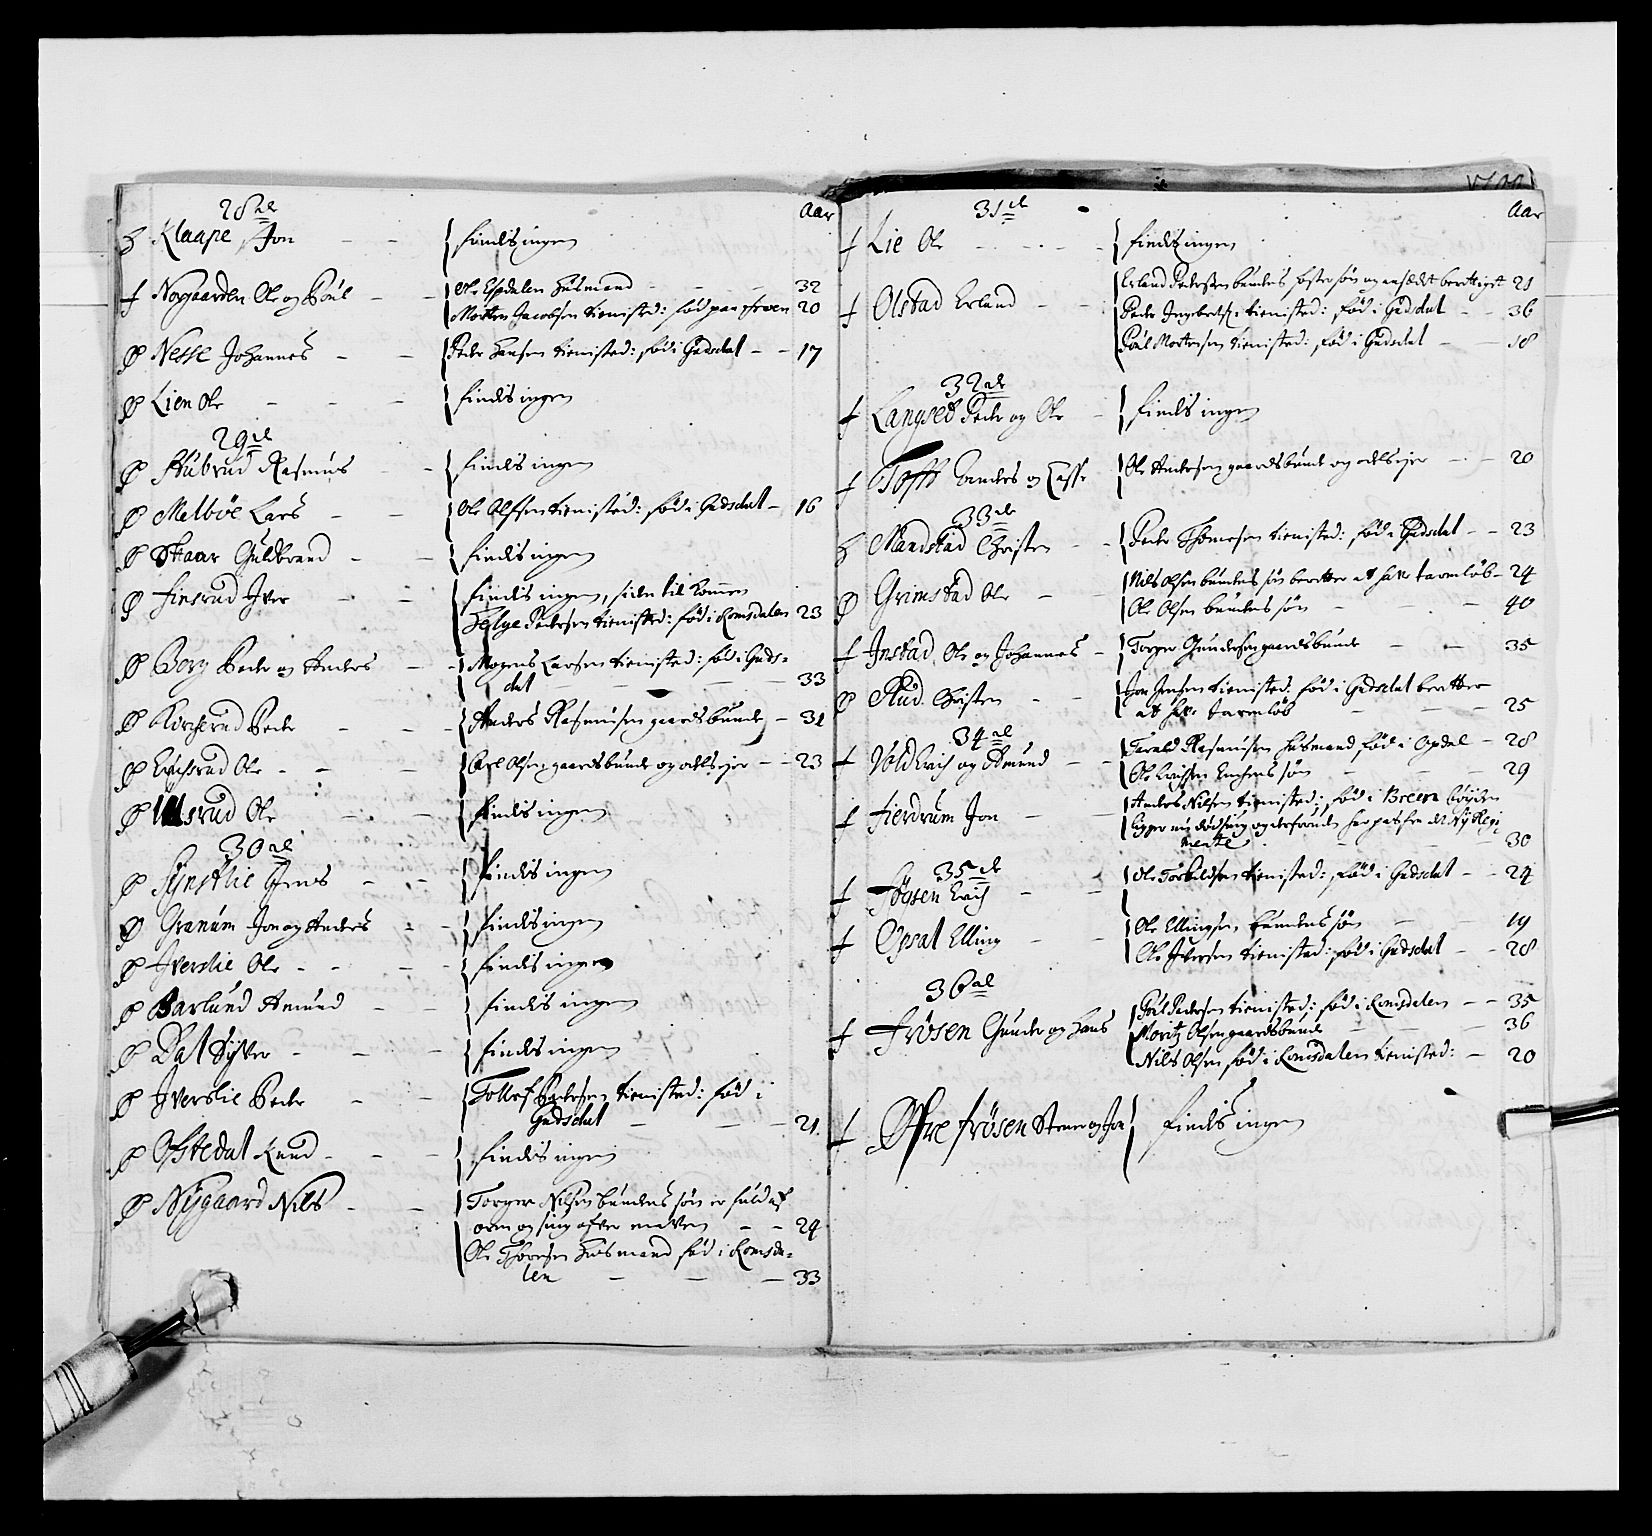 28de
Aar
h Klaape, Jon - - findis ingen
f Norgaarden Ole og Poül - - Ole Espdalen Huusmand - - - 32
Morten Jacobsen tienisted: fød paa Hveen 20
Ø Nesse Johannes - - Peder Hansen tienisted: fød i Gudsdal - - 17
Ø Lien Ole - - - findis ingen
29de
Ø Stubrud Rasmus - - findis ingen
Ø Melbøe Lars - - Ole Olssen tienisted: fød i Gudsdal - 16
Ø Skaar Guldbrand - - findis ingen
Ø Finsrud Iver - - findis ingen, siden til kommen
Helge Pedersen tienisted: fød i Romsdalen 23
Ø Borg Peder og Anders - - Mogens Larsen tienisted: fød i Guds-
dal - - - 33
Ø Kirchsrud Peder - - Anders Rasmusen gaardsbunde - 31
Ø Erichsrud Ole - - - Carl Olsen gaardsbunde og odelsejer - - 23
Ø Ulsrud Ole - - findis ingen
30de
Ø Synstlie Jens - - findis ingen
Ø Granum Jon og Anders - - findis ingen
Ø Iverslie Ole - - - - findis ingen
Ø Barlund Amund - - findis ingen
Ø Dal Syver - - - findis ingen
Ø Iverslie Peder - - Tollef Pedersen tienisted: fød i
Gudsdal - - - 21.
Ø Ofstedal Knud - - - findis ingen
Ø Nygaard Nils - - Torger Nilsen bundens søn er fuld af
orm og siug ofver maden - - 24
Ole Thoresen Huusmand fød i Romsda-
len - - - 33
31de
Aar
f Lie Ole - - - - findis ingen
f Olstad Erland - - Erland Pedersen bundens fostersøn og ansædt berettiget 21
Peder Ingebretsen tienisted: fød i Gudsdal - - 36
Poul Mortensen tienisted: fød i Gudsdal - - 38
32de
f Langsed Peder og Ole - findis ingen
f Tofft Anders og Lasse Ole Andersen gaardsbunde og odelsejer - - 20
33de
h Mandstad Christen - - Peder Thomesen tienisted: fød i Gudsdal - - 23
Ø Grimstad Ole - - Nils Olsen bundens søn beretter at have tarmløb - 24
Ole Olsen bundens søn - - - 40
f Instad, Ole og Johannes - Torger Gundersen gaardsbunde - - 35
Ø Rud Christen - - Jon Jensen tienisted: fød i Gudsdal beretter
at have tarmløb - - - 25
34de
f Vold Erich og Amund - - Tarald Rasmusen husmand fød i Opdal - 28
Ole Erichsen Enchens søn - - - 29
f Fierdrum Jon - Anders Nilsen tienisted: fød i Breem bøyden
ligger nu dødsiug og derforuden har pas fra det Ny Regi-
mente - - - 30
35de
f Forsen Erich - - Ole Torkildsen tienisted: fød i Gudsdal - - 24
f Opsal Elling - - Ole Ellingsen, bundens søn - - 19
Ole Iversen tienisted: fød i Gudsdal - - 28
36de
f Frøsen Gunder og Hans Poul Pedersen tienisted: fød i Romsdalen - - 35
Moritz Olsen gaardsbunde - - - 36
Nils Olsen fød i Romsdalen tienisted: - 20
f Øfre frøsen Stener og Jon findis ingen